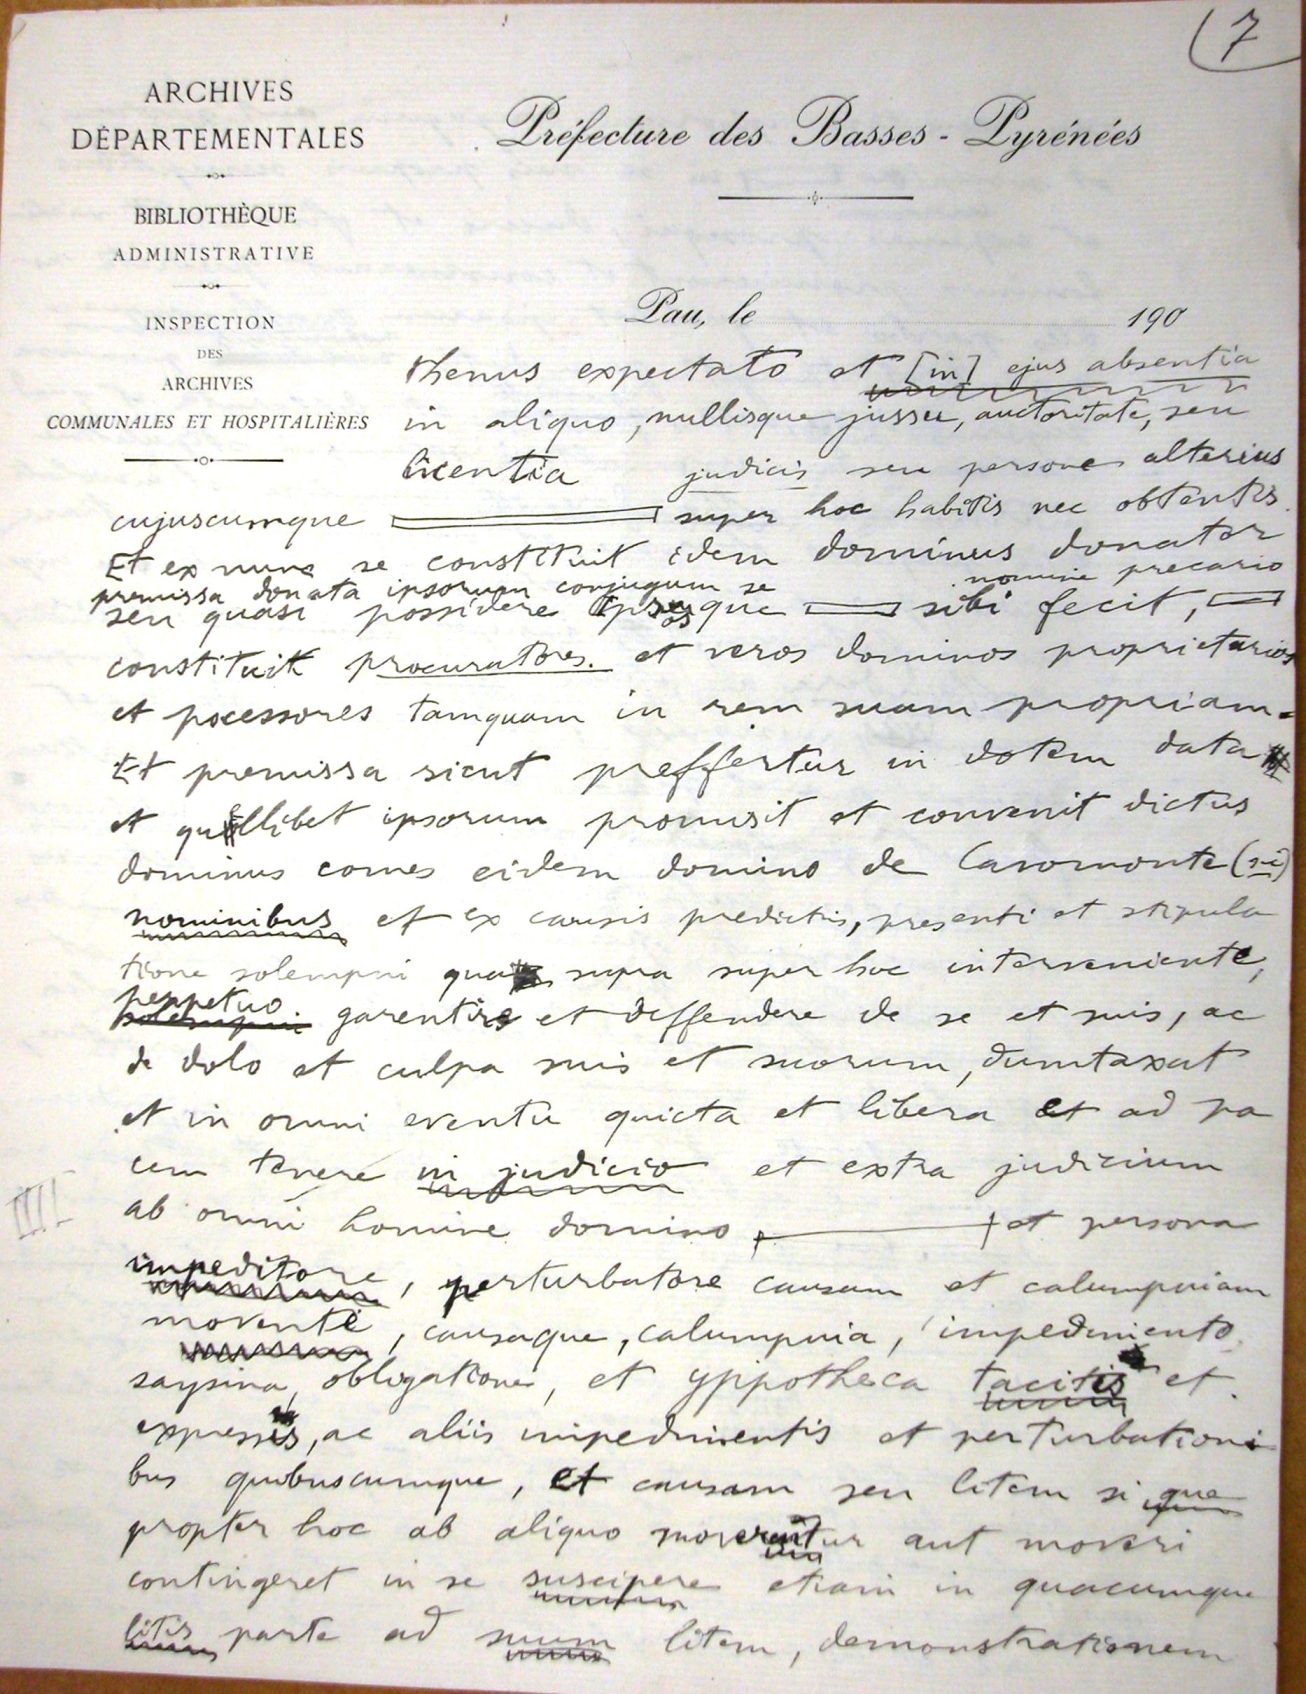 7
ARCHIVES
DÉPARTEMENTALES
BIBLIOTHÈQUE
ADMINISTRATIVE
INSPECTION
DES
ARCHIVES
COMMUNALES ET HOSPITALIÈRES
Préfecture des Basses-Pyrénées
Pau, le 190
thenus expectato et [in] ejus absentia
in aliquo, nullisque jussu, auctoritate, seu
licentia judicis seu persone alterius
cujuscumque super hoc habitis nec obtentis.
Et ex nunc se constituit idem dominus donator
premissa donata ipsorum conjugum se nomine precario
seu quasi possidere ipsosque sibi fecit,
constituit procuratores. et veros dominos proprietarios
et pocessores tamquam in rem suam propriam.
Et premissa sicut preffertur in dotem data
et quillibet ipsorum promisit et convenit dictus
dominus comes eidem domino de Caromonte (sic)
nominibus et ex causis predictis, presenti et stipula
tione solempni qua supra super hoc interveniente,
perpetuo garentire et deffendere de se et suis, ac
de dolo et culpa suis et suorum, dumtaxat
et in omni eventu quieta et libera et ad pa
cem tenere in judicio et extra judicium
ab omni homine domino et persona
impeditore, perturbatore causam et calumpniam
movente, causaque, calumpnia, impedimento
saysina, obligatione, et yppotheca tacitis et
expressis, ac aliis impedimentis et perturbationi
bus quibuscumque, et causam seu litem si que
propter hoc ab aliquo moverentur aut moveri
contingeret in se suscipere etiam in quacumque
litis parte ad suum litem, demonstrationem